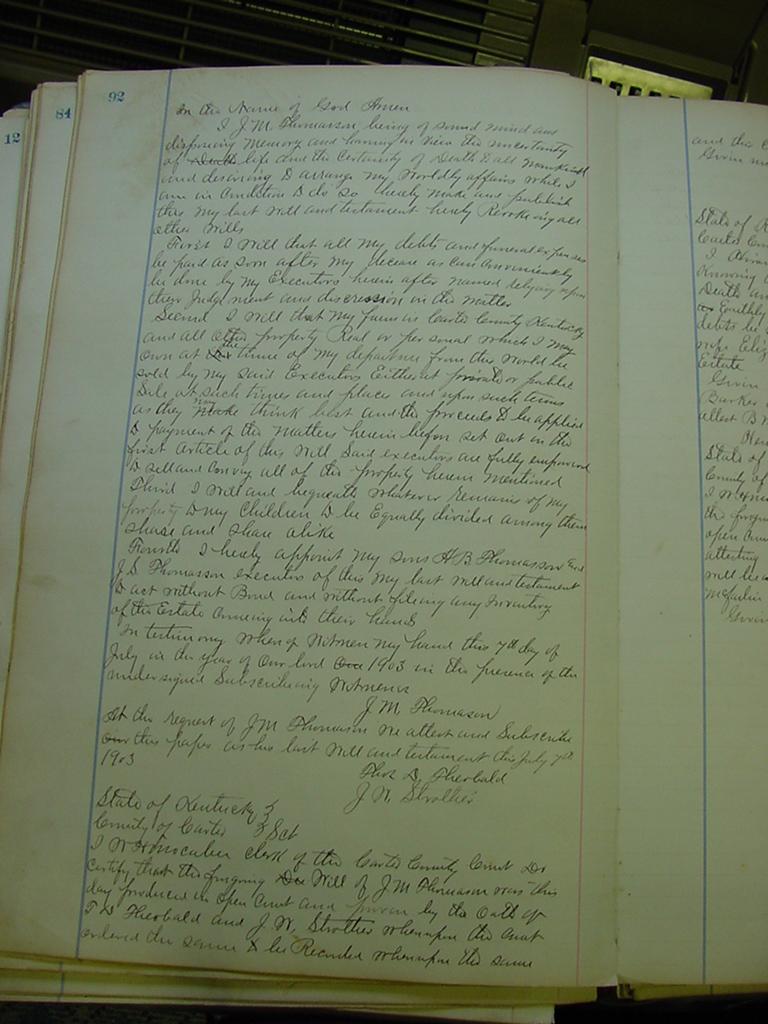 92
84
12
In the Name of God Amen
I J.M. Thomasson being of sound mind and
disposing Memory and having in View the uncertainty
of Death life and the Certainty of Death to all Mankind
and desiring to arrange my Worldly affairs while I
am in Condition to do so hereby Make and publish
this my last Will and testament hereby Revokeing all
other Wills
First I Will that all my debts and funeral expenses
be paid as soon after my decease as Can Conveniently
be done by my Executors herein after named relying upon
their Judgment and discression in the Matter
Second I Will that my farm in Carter County Kentucky
and all other property Real or personal which I may
own at the time of my departure from this World be
sold by my said Executors Either at private or public
Sale at such times and places and upon such terms
as they may think best and the proceeds to be applied
to payment of the Matters herein before set out in the
first article of this Will Said executors are fully empowered
to sell and Convey all of the property herein Mentioned
Third I Will and bequeath Whatever remains of my
property to my Children to be Equally divided among them
share and share alike
Fourth I hereby appoint my sons H.B. Thomasson and
J.S. Thomasson executors of this my last Will and testament
to act without Bond and without fileing any Inventory
of the Estate Comeing into their hands
In testimony Whereof Witness my hand this 7th day of
July in the year of Our lord One 1903 in the presence of the
undersigned Subscribeing Witnesses
J.M. Thomason
At the request of J.M Thomason We attest and Subscribe
this paper as his last Will and testament this July 7th
1903
Thos D. Theobald
J.W. Strother
State of Kentucky }
County of Carter } Sct
I Clerk of the Carter County Court Do
Certify that the foregoing Will of J.M Thomason was this
day produced in Open Court and proven by the Oath of
T D Theobald and J.W. Strother whereupon the Court
ordered the same to be Recorded whereupon the same
and the
Given
State of
Carter
I
Knowing
Death an
Earthly
debts be
wife Eliz
Estate
Given
Barker
attest B
State of
County of
the foregoing
open Court
attesting
Given